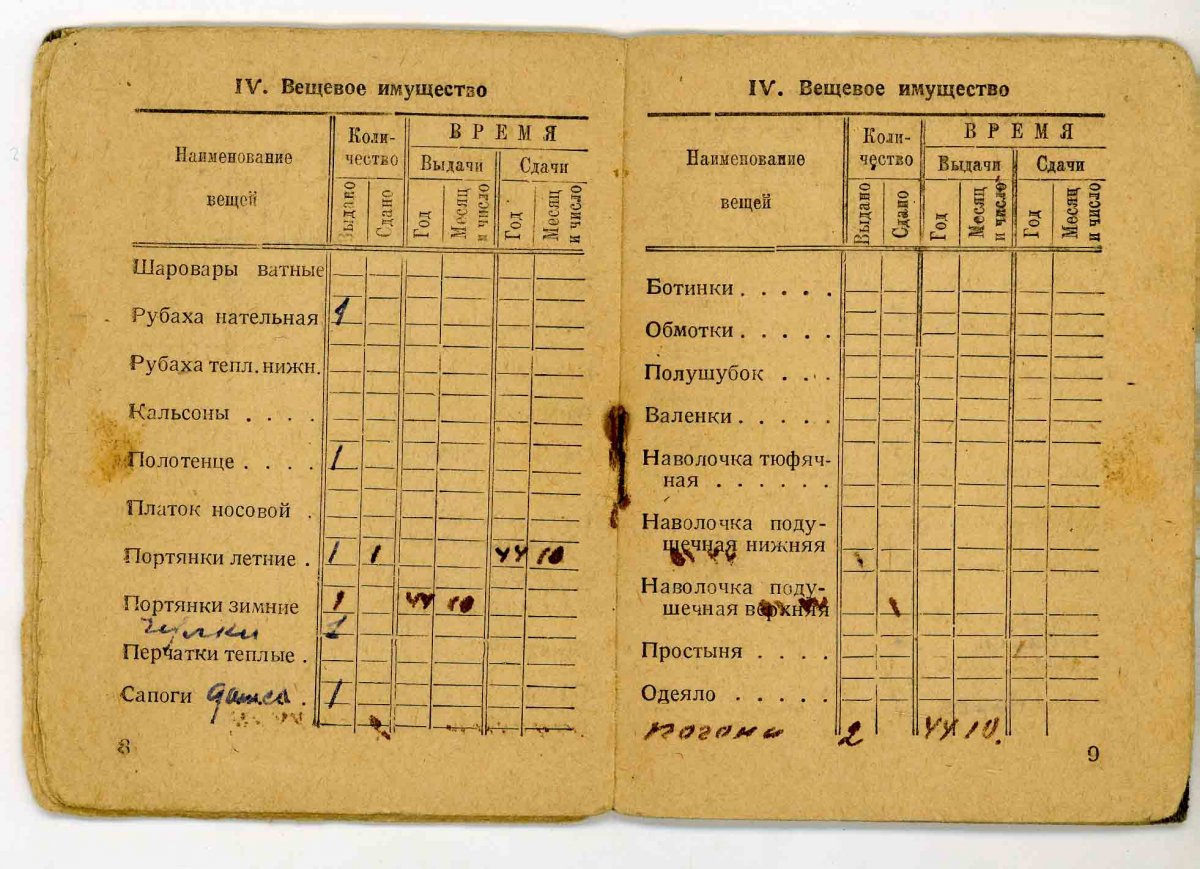 IV. Вещевое имущество
Наименование вещей
Коли-
чество
ВРЕМЯ
Выдачи
Сдачи
Выдано
Сдано
Год
Месяц
и число
Год
Месяц
и число
Шаровары ватные
Рубаха нательная 1
Рубаха тепл. нижн.
Кальсоны . . . .
Полотенце . . . . 1
Платок носовой .
Портянки летние . 1 1 44 10
Портянки зимние 1 44 10
чулки 1
Перчатки теплые .
Сапоги . 1
8
IV. Вещевое имущество
Наименование вещей
Коли-
чество
ВРЕМЯ
Выдачи
Сдачи
Выдано
Сдано
Год
Месяц
и число
Год
Месяц
и число
Ботинки . . . . .
Обмотки . . . . .
Полушубок . . .
Валенки . . . . .
Наволочка тюфяч-
ная . . . . . .
Наволочка поду-
шечная нижняя
Наволочка поду-
шечная верхняя
Простыня . . . .
Одеяло . . . . .
погоны 2 44 10.
9